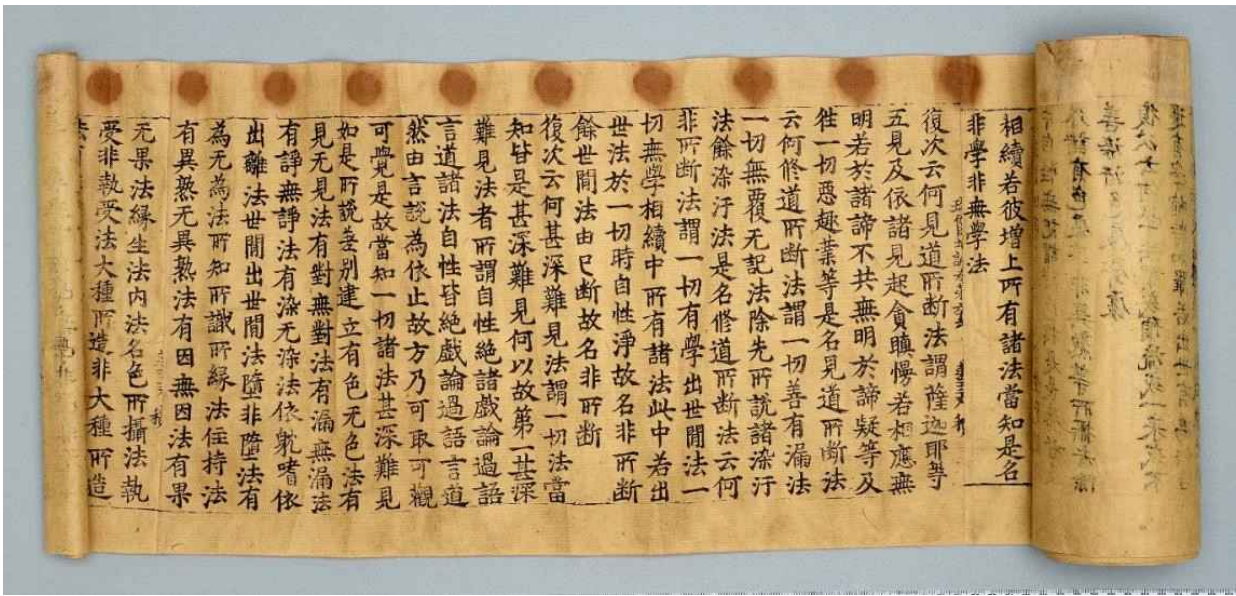 相續若彼增上所有諸法當知是名
非學非無學法
復次云何見道所斷法謂薩迦耶等
五見及依諸見起貪瞋慢若相應無
明若於諸諦不共無明於諦疑等及
往一切惡趣業等是名見道所斷法
云何修道所斷法謂一切善有漏法
一切無覆无記法除先所說諸染汙
法餘染汙法是名修道所斷法云何
非所斷法謂一切有學出世間法一
切無學相續中所有諸法此中若出
世法於一切時自性淨故名非所斷
餘世間法由已斷故名非所斷
復次云何甚深難見法謂一切法當
知皆是甚深難見何以故第一甚深
難見法者所謂自性絕諸戲論過語
言道諸法自性皆絕戲論過語言道
然由言說為依止故方乃可取可觀
可覺是故當知一切諸法甚深難見
如是所說差別建立有色无色法有
見无見法有對無對法有漏無漏法
有諍無諍法有染无染法依躭嗜依
出離法世間出世間法墮非墮法有
為无為法所知所識所緣法住持法
有異熟无異熟法有因無因法有果
无果法緣生法內法名色所攝法執
受非執受法大種所造非大種所造